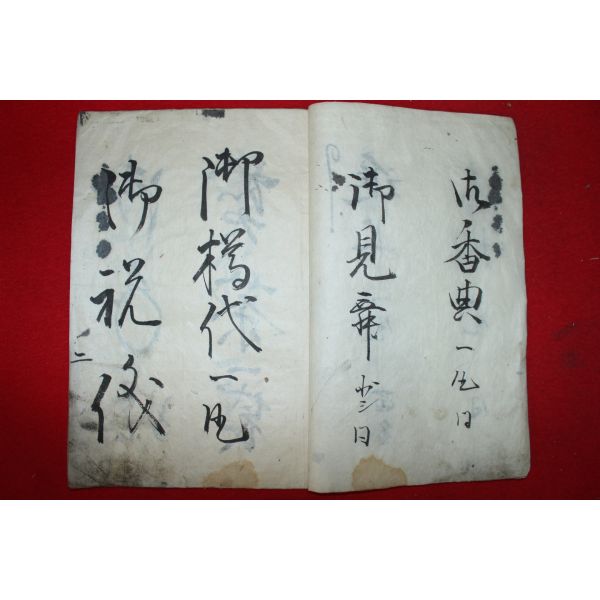 御香典一匁 日
御見舞 日
御樽代一匁
御祝儀
二